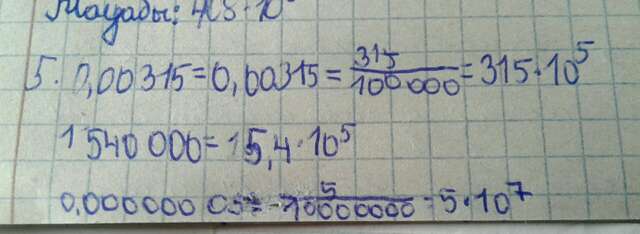 5. 0,00315=0,00315= 315/100000 =315·10⁵
1540 000= 15,4·10⁵
0,000000 05= 5/10000000 =5·10⁷